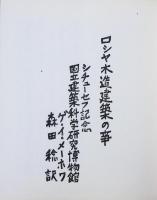 ロシヤ木造建築の華
シチューセフ記念
国立建築科学研究博物館
ゲ・イ・メーホワ
森田稔訳